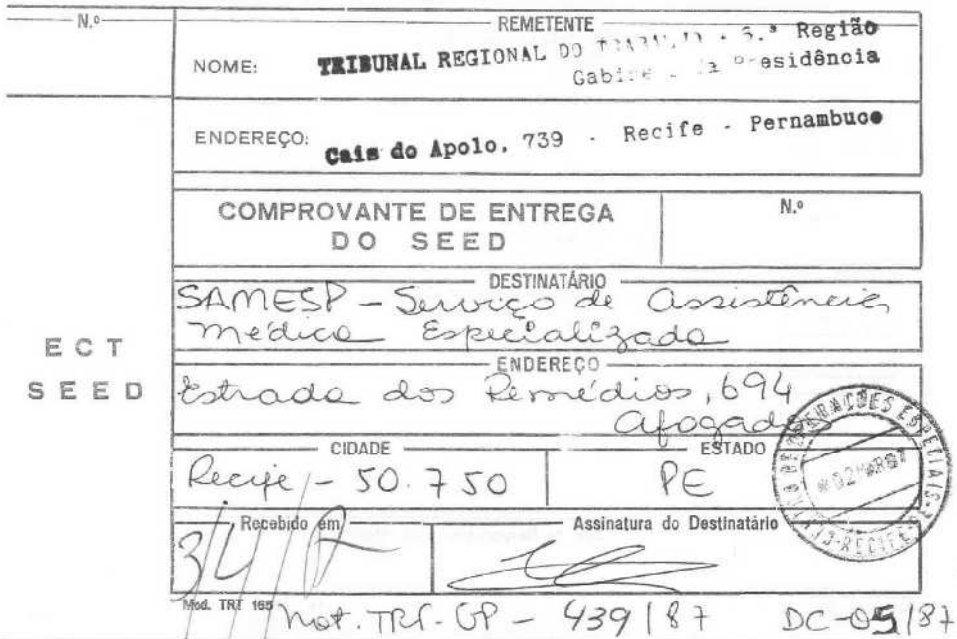 N.º
REMETENTE
NOME: TRIBUNAL REGIONAL DO TRABALHO - 6.ª Região
Presidência
ENDEREÇO: Cais do Apolo, 739 - Recife - Pernambuco
COMPROVANTE DE ENTREGA
DO SEED
N.º
ECT
SEED
DESTINATÁRIO
SAMESP - Serviço de assistência
médica Especializada
ENDEREÇO
Estrada dos Remédios, 694
afogados
CIDADE
Recife - 50.750
ESTADO
PE
Recebido em
3/4/
Assinatura do Destinatário
OPERAÇÕES ESPECIAIS
02 MAR 87
RECIFE
Mod. TRT 165
Not. TRT-GP - 439/87 DC-05/87